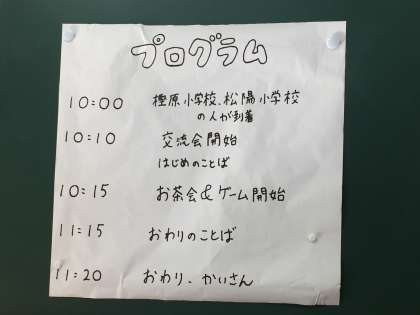 プログラム
10:00 樫原小学校、松陽小学校
の人が到着
10:10 交流会開始
はじめのことば
10:15 お茶会&ゲーム開始
11:15 おわりのことば
11:20 おわり、かいさん